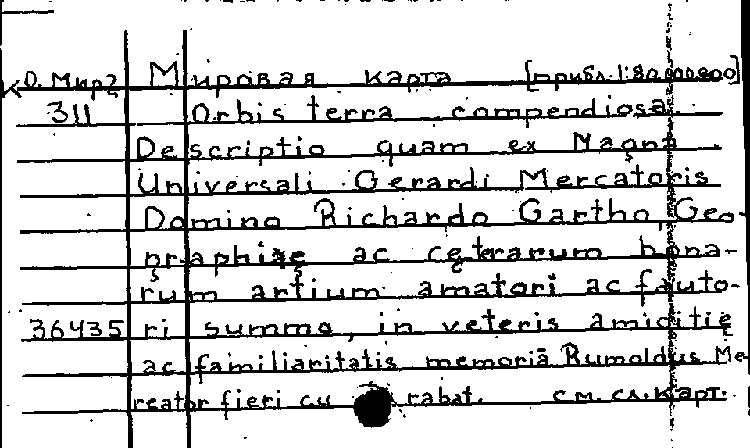 Ко. Мир2 Мировая карта [прибл. 1:80.000.000]
311 Orbis terra compendiosa
Descriptio quam ex Magna
Universali Gerardi Mercatoris
Domino Richardo Gartho, Geo-
graphiae ac ceterarum bona-
rum artium amatori ac fauto-
36435 ri summo, in veteris amicitie
ac familiaritatis memoriā Rumoldus Me
reator fieri cu rabat. см. сл. карт.